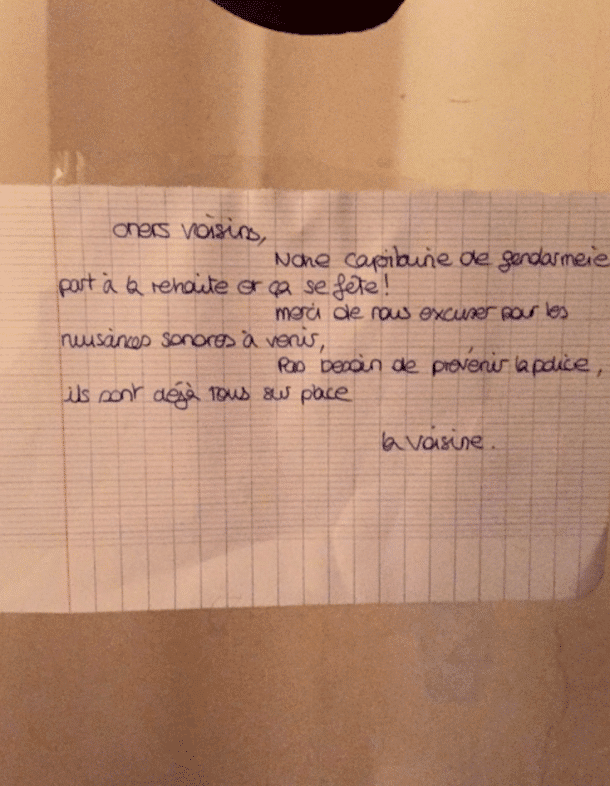 chers voisins,
Notre capitaine de gendarmerie
part à la retraite et ça se fête !
merci de nous excuser pour les
nuisances sonores à venir,
Pas besoin de prévenir la police,
ils sont déjà tous sur place
la voisine.